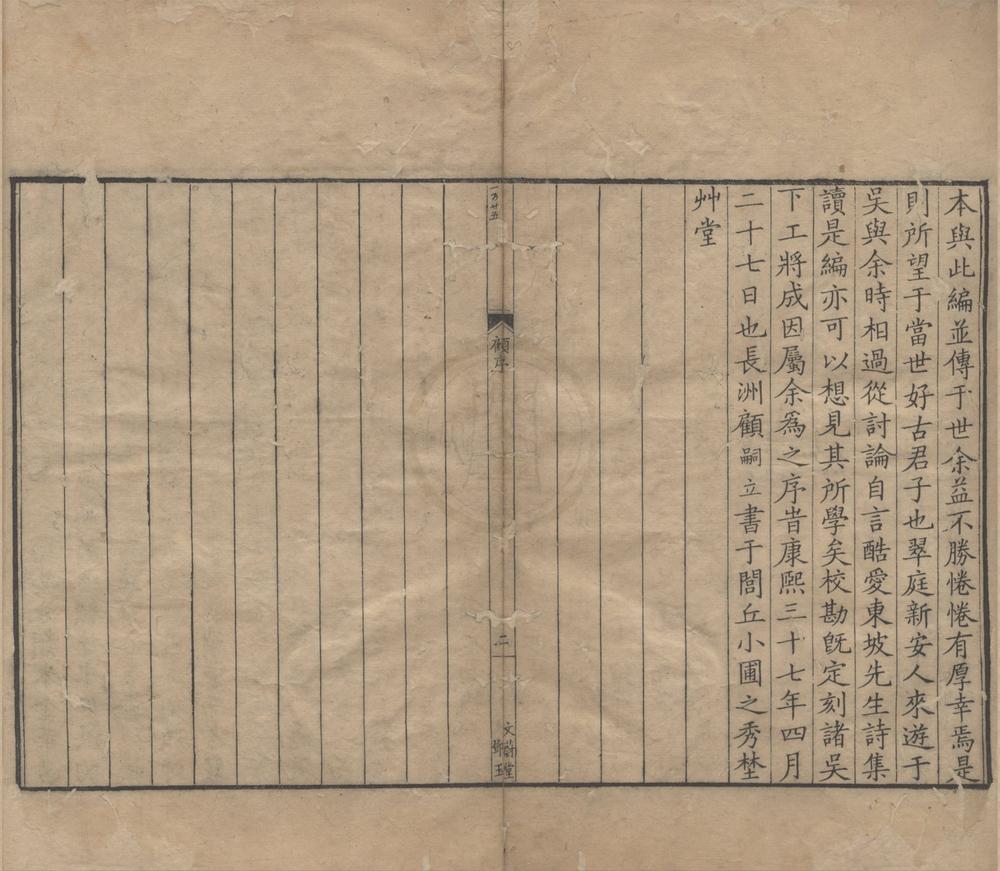 本與此編並傳于世余益不勝惓惓有厚幸焉是
則所望于當世好古君子也翠庭新安人來遊于
吳與余時相過從討論自言酷愛東坡先生詩集
讀是編亦可以想見其所學矣校勘既定刻諸吳
下工將成因屬余爲之序旹康熙三十七年四月
二十七日也長洲顧嗣立書于閶丘小圃之秀埜
艸堂
顧序
二
文蔚堂